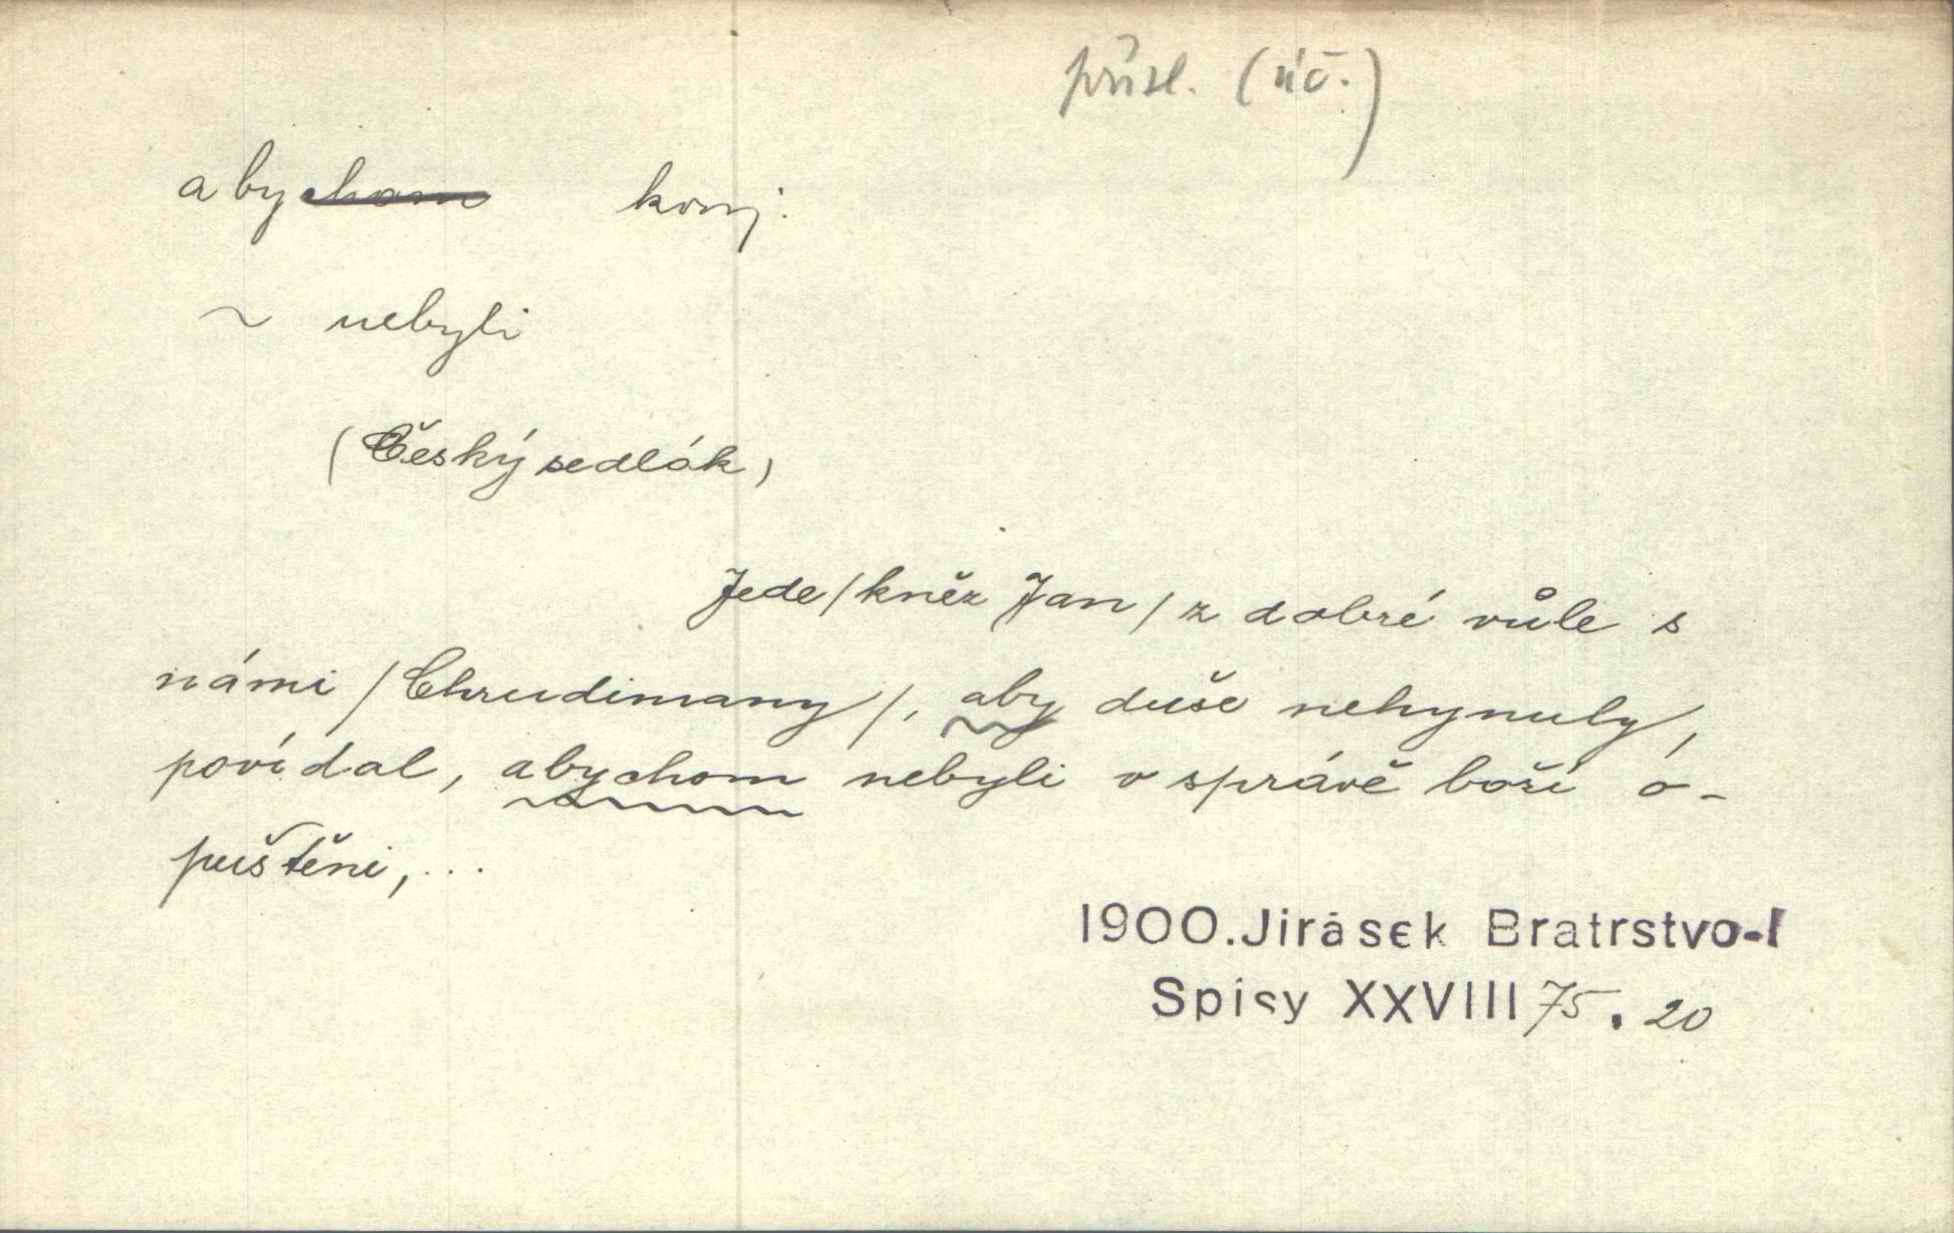 přísl. (úč.)
abychom konj.
~ nebyli
(Český sedlák)
Jede /kněz Jan/ z dobré vůle s
námi /Chrudimany/, aby duše nehynuly,
povídal, abychom nebyli v správě boží o-
puštěni,...
1900. Jirásek Bratrstvo-I
Spisy XXVIII 75. 20